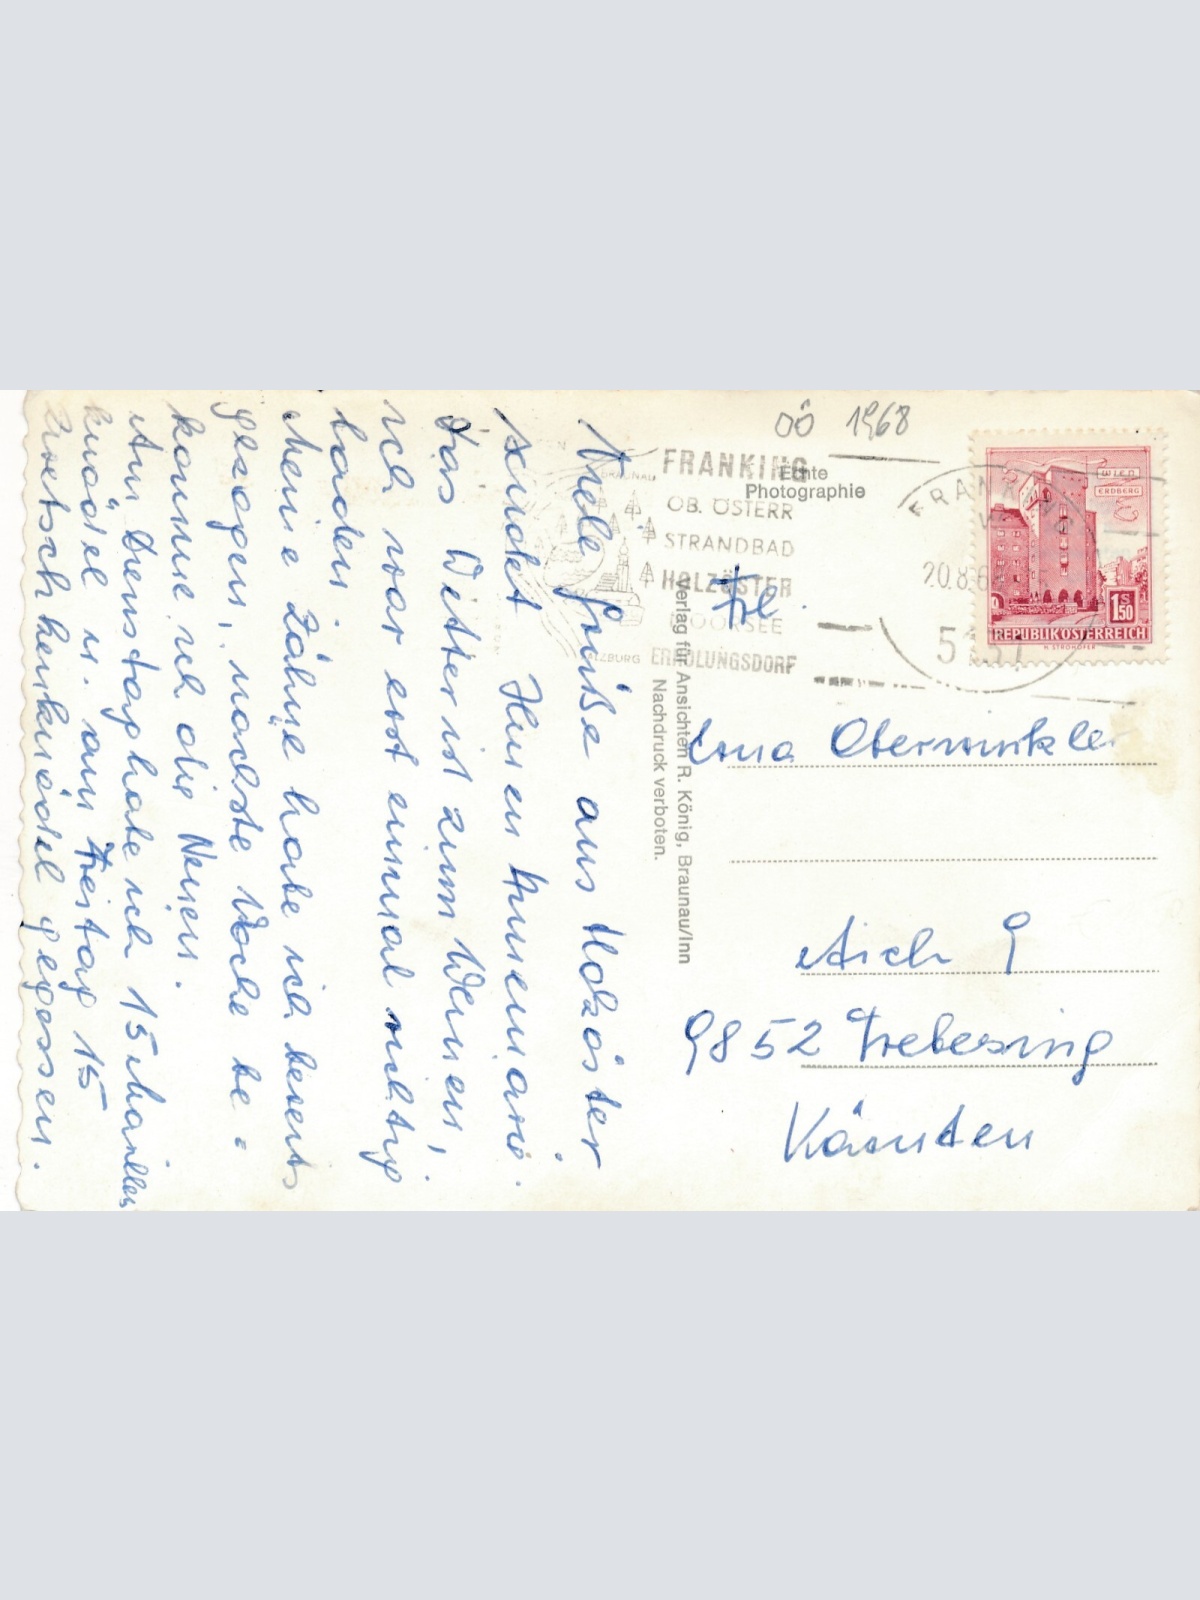 Viele Grüße aus Holzöster
sendet Ihnen Annemarie.
Das Wetter ist zum Weinen,
ich war erst einmal richtig
baden.
Meine Zähne habe ich bereits
gezogen, nächste Woche be=
komme ich die Neuen.
Am Dienstag habe ich 15 Marillen
knödel u. am Freitag 15
Zwetschkenknödel gegessen.
OÖ 1968
Echte
Photographie
FRANKING
OB. ÖSTERR
STRANDBAD
HOLZÖSTER
MOORSEE
ERHOLUNGSDORF
BRAUNAU
SALZBURG
FRANKING
20.8.68
5131
WIEN
ERDBERG
1S50
REPUBLIK ÖSTERREICH
H. STROHOFER
Verlag für Ansichten R. König, Braunau/Inn
Nachdruck verboten.
Frl.
Erna Oberwinkler
Aich 9
9852 Trebesing
Kärnten